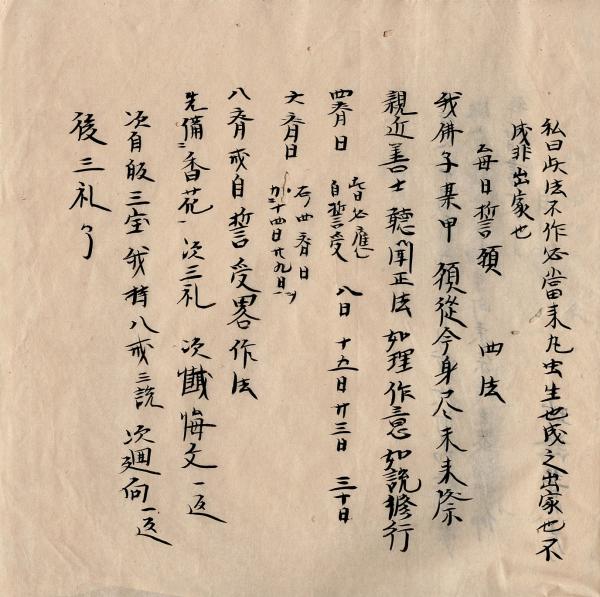 私曰此法不作必當來九虫生也成之出家也不
成非出家也
毎日誓願 四法
我佛子某甲 願從今身尽未来際
親近善士 聽聞正法 如理作意 如說修行
四斎日 昔必應 自誓受 八日 十五日 廿三日 三十日
六斎日 右四斎日 加十四日廿九日
八斎戒自誓受畧作法
先備香花 次三礼 次懺悔文一返
次自皈三宝 我持八戒三説 次廻向一返
後三礼了